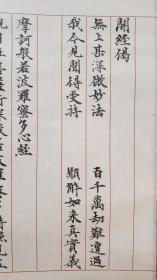 開經偈
無上甚深微妙法　百千萬劫難遭遇
我今見聞得受持　願解如來真實義
摩訶般若波羅蜜多心經